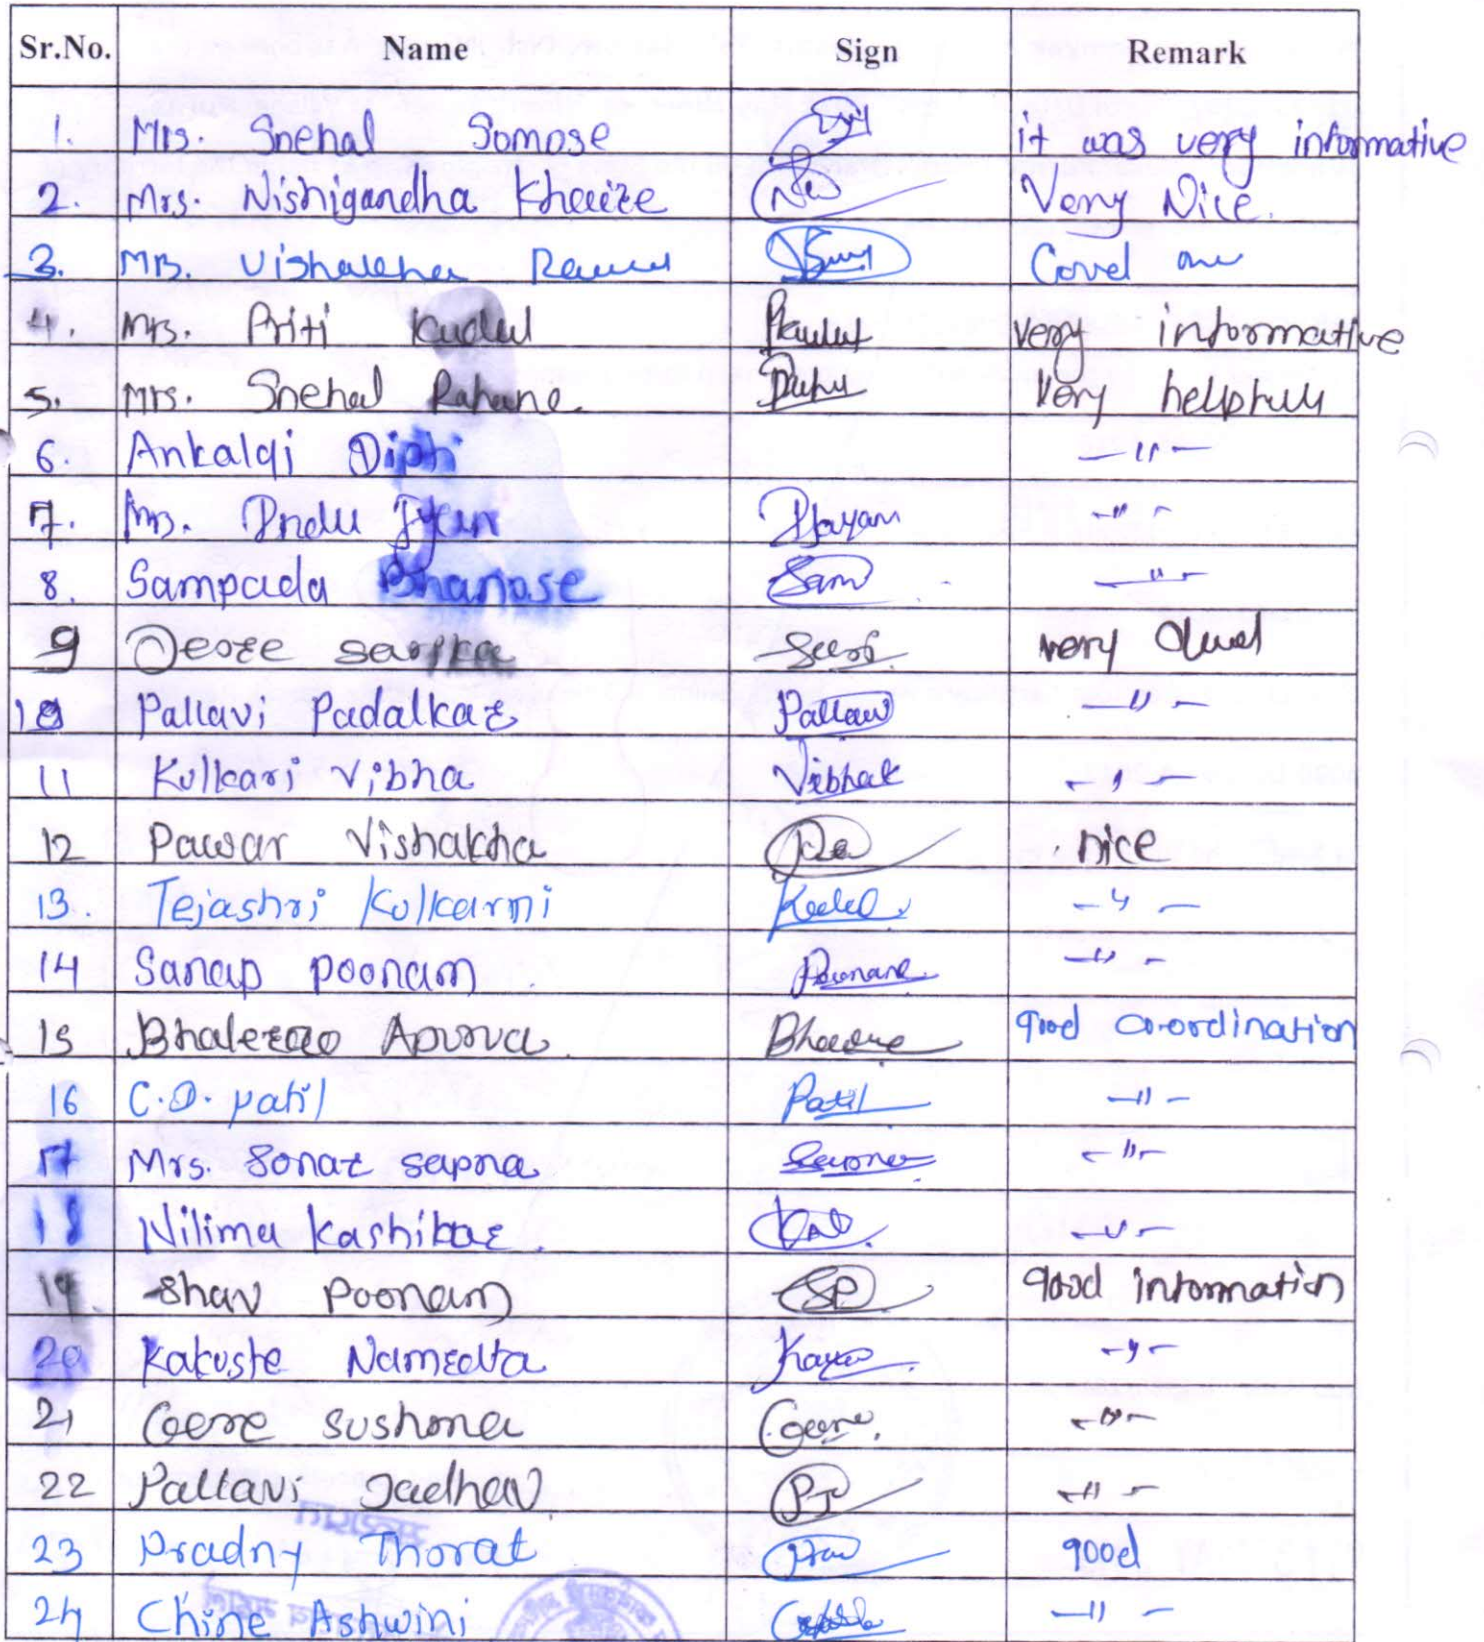 Sr.No. Name Sign Remark
1. Mrs. Snehal Somose it was very informative
2. Mrs. Nishigandha Khaire Very Nice.
3. Mrs. Vishalkha
4. Mrs. Priti Kudul very informative
5. Mrs. Snehal Rahane. Very helpfull
6. Ankalgi Dipti —11—
7. Mrs. Indu —"—
8. Sampada Bhanose Sam —"—
9 Deore sarika very Good
10 Pallavi Padalkar Pallavi —11—
11 Kulkari Vibha VibhaK —,—
12 Pawar Vishakha nice
13. Tejashri Kulkarni —"—
14 Sanap poonam Poonam —"—
15 Bhalerao Apurva good co-ordination
16 C.D. patil Patil —11—
17 Mrs. Sonar sapna —"—
18 Nilima Kashikar. —"—
19. Shav Poonam SP good information
20 Kakuste Namrata —"—
21 Gere sushma Gere. —"—
22 Pallavi Jadhav PJ —11—
23 Pradny Thorat good
24 Chine Ashwini —11—